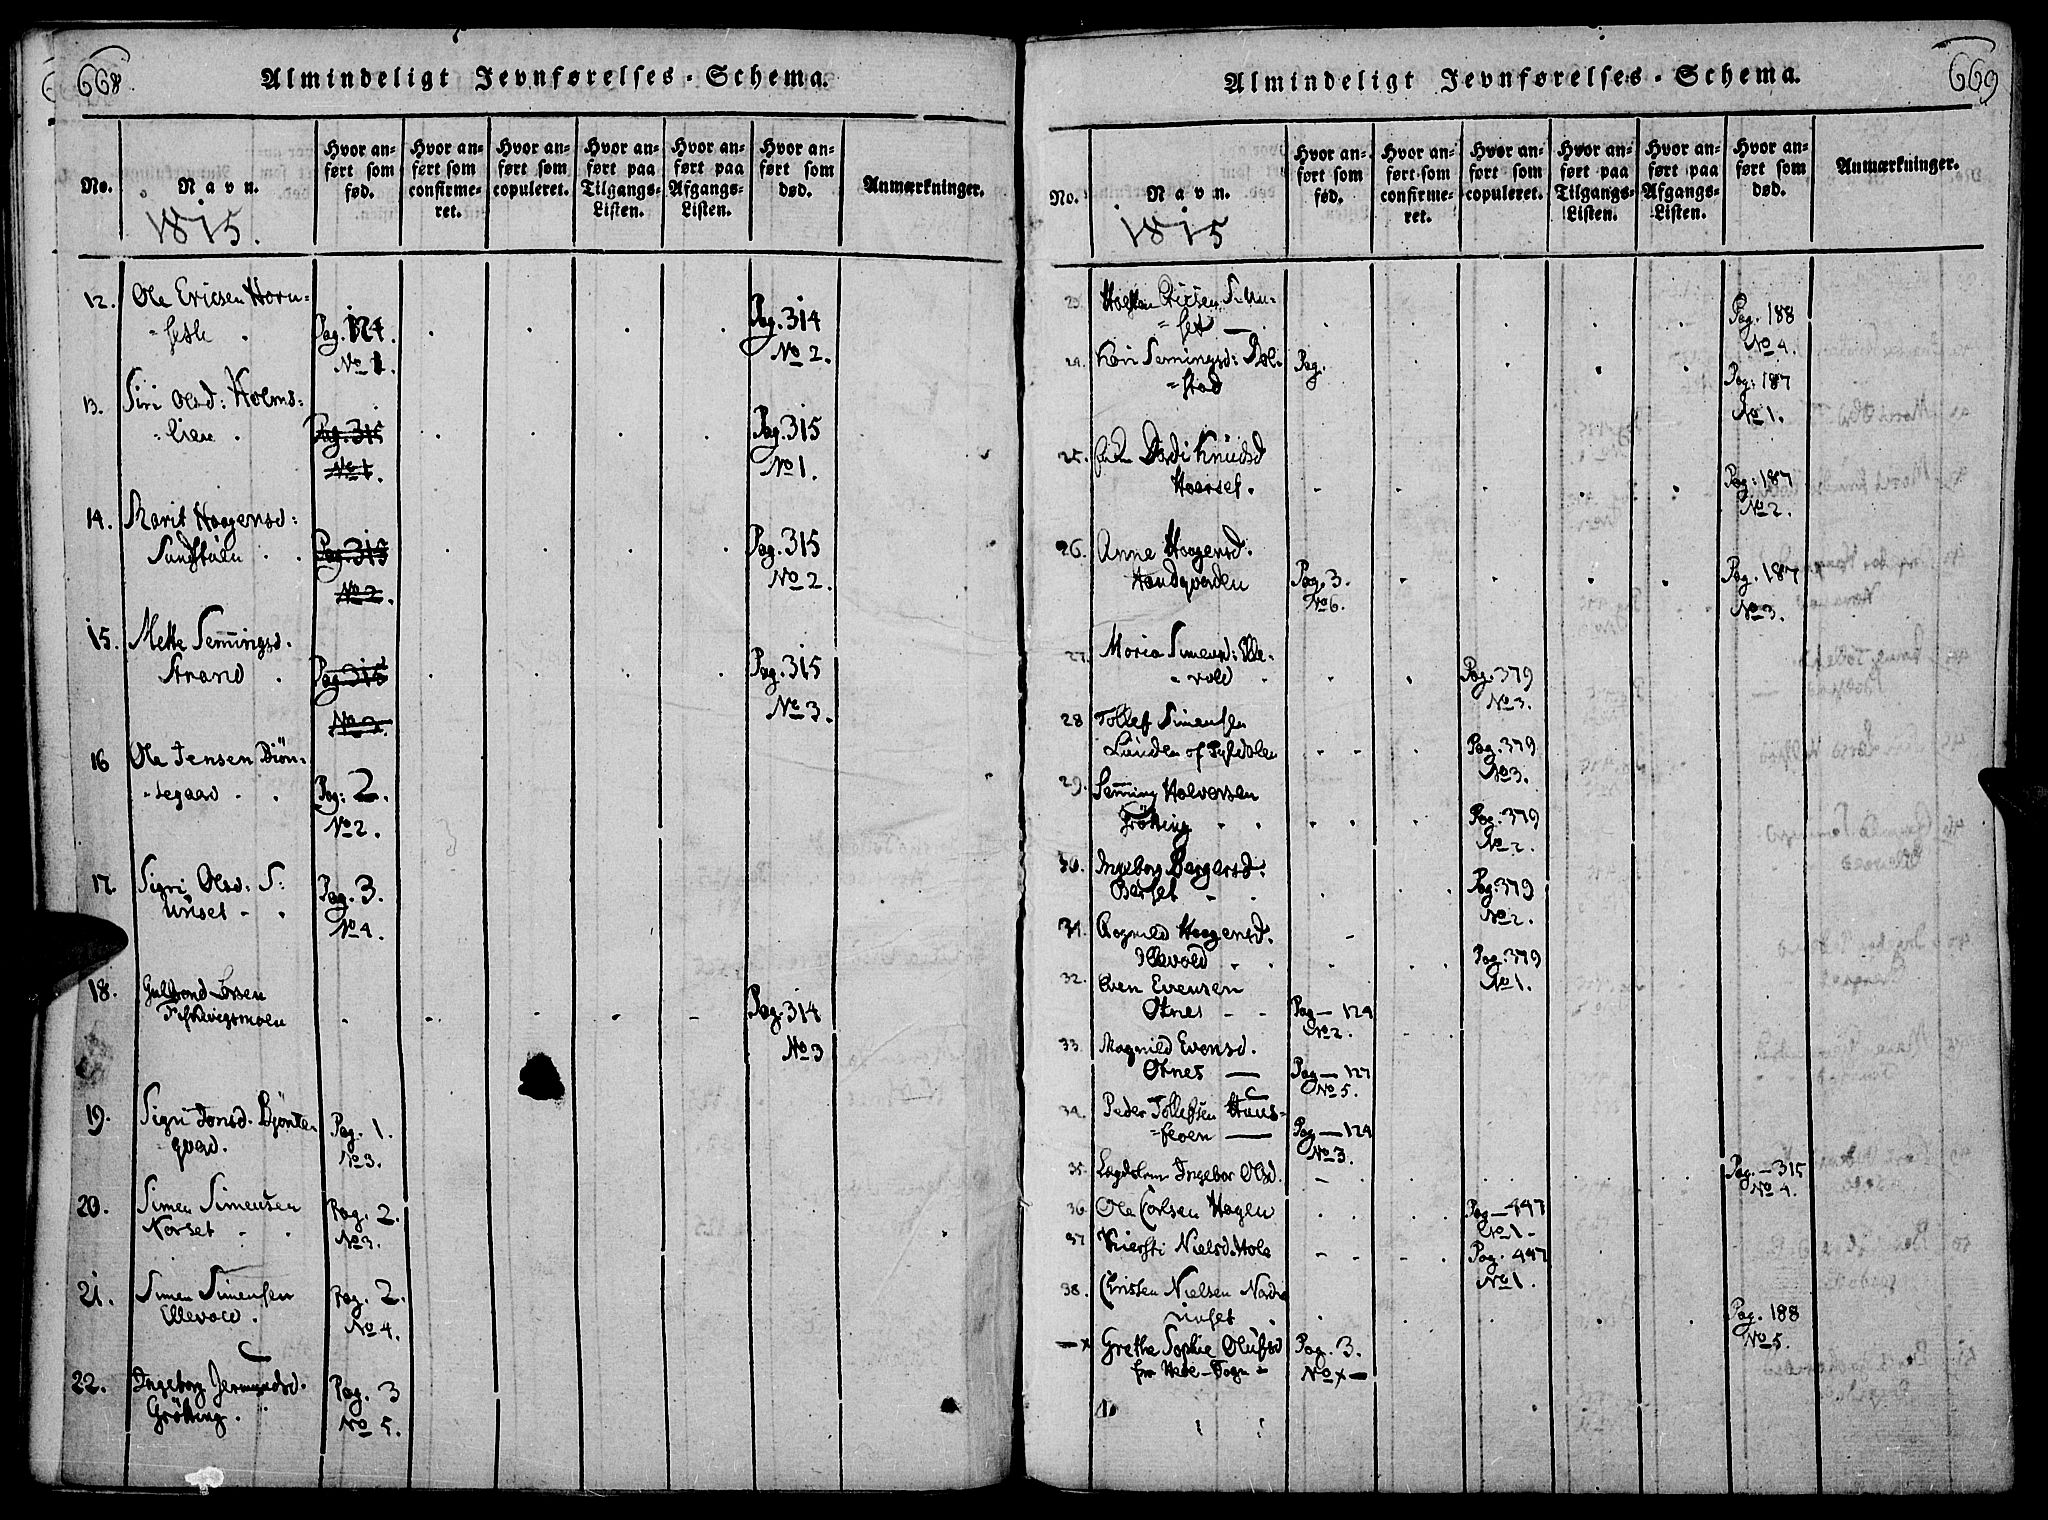 668
Almindeligt Jevnførelses-Schema.
No.
Navn.
Hvor an-
ført som
fød.
Hvor an-
ført som
confirme-
ret.
Hvor an-
ført som
copuleret.
Hvor an-
ført paa
Tilgangs-
Listen.
Hvor an-
ført paa
Afgangs-
Listen.
Hvor an-
ført som
død.
Anmærkninger.
1815.
12. Ole Ericsen Horn-
Pag. 124. Pag. 314
No 1. No 2.
13. Siri Olsd: Holms-
Pag. 315 Pag. 315
No 1. No 1.
14. Marit Haagensd:
Pag. 315 Pag. 315
No 2. No 2.
15. Mette Semingsd.
Strand Pag. 315 Pag. 315
No 3. No 3.
16 Ole Jensen Biön-
-tegaard Pag: 2.
No 2.
17. Sigri Olsd: S:
Uhset Pag. 3.
No 4.
18. Gulbrand Larsen
Pag. 314
No 3
19. Sigri Jonsd. Bjönte-
gard. Pag. 1.
No 3.
20. Simen Simensen
Norset Pag. 2.
No 3.
21. Simen Simensen
Ellevold. Pag. 2.
No 4.
22. Ingeborg Jermundsd.
Grötting. Pag. 3
No 5.
669
Almindeligt Jevnførelses-Schema.
No.
Navn.
Hvor an-
ført som
fød.
Hvor an-
ført som
confirme-
ret.
Hvor an-
ført som
copuleret.
Hvor an-
ført paa
Tilgangs-
Listen.
Hvor an-
ført paa
Afgangs-
Listen.
Hvor an-
ført som
død.
Anmærkninger.
1815
23. Ericsen
Pag. 188
No 4.
24. Kari Semingsd: Bol-
-stad Pag. Pag: 187
No 1.
25. Knudsd
Haarset. Pag: 187
No 2.
26. Anne Haagensd.
Haandgarden Pag. 3. Pag. 187
No 6. No 3.
27. Maria Simensd: Elle-
vold Pag. 379
No 3.
28 Tollef Simensen
Lunden af Tyldalen Pag. 379
No 3.
29. Semming Halvorsen
Grötting Pag. 379
No 2.
30. Ingeborg Bergersd:
Berset Pag. 379
No 2.
31. Ragnild Haagensd.
Ellevold Pag. 379
No 1.
32. Even Evensen
Otnes Pag — 124
No 2.
33. Magnild Evensd.
Otnes — Pag — 127
No 5.
34. Peder Tollefsen Haus-
Pag — 124
No 3.
35. Ingebor Olsd. Pag. — 315
No 4.
36. Ole Carlsen Hagen Pag — 447
No 1
37. Kiersti Nielsd. Hole Pag. 447
No 1.
38. Christen Nielsen Nordre
Pag. 188
No 5.
—x Grethe Sophie Olufsd Pag. 3.
No x —